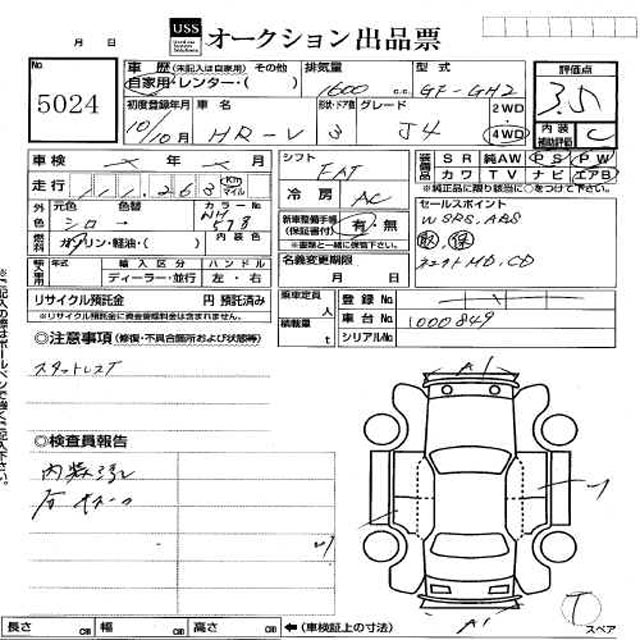 月 日
USS Used car System Solutions
オークション出品票
No 5024
車歴 (未記入は自家用) その他
自家用・レンター・( )
排気量 1600 c.c.
型式 GF-GH2
評価点 3.5
初度登録年月 10/10月
車名 HR-V
形状・ドア数 3
グレード J4
2WD
4WD
内装 補助評価 C
車検 年 月
走行 111,263 Km マイル
シフト FAT
冷房 AC
装備品 SR 純AW PS PW
カワ TV ナビ エアB
※純正品に限り該当に○をつけて下さい。
外色 元色 色替 カラーNo
シロ → NH 578
燃料 ガソリン・軽油・( ) 内装色
新車整備手帳 (保証書付) 有・無
※書類と一緒に保管下さい。
セールスポイント
W SRS, ABS
取 保
コネクトMD, CD
輸入車用 年式 輸入区分 ハンドル
ディーラー・並行 左・右
名義変更期限
月 日
リサイクル預託金 円 預託済み
※リサイクル預託金に資金管理料金は含まれません。
乗車定員 人
積載量 t
登録No
車台No 1000849
シリアルNo
◎注意事項 (修復・不具合箇所および状態等)
スタットレスT
◎検査員報告
内装
A1
A1
T
スペア
長さ cm 幅 cm 高さ cm ←(車検証上の寸法)
※ご記入の際はボールペンで強くご記入下さい。